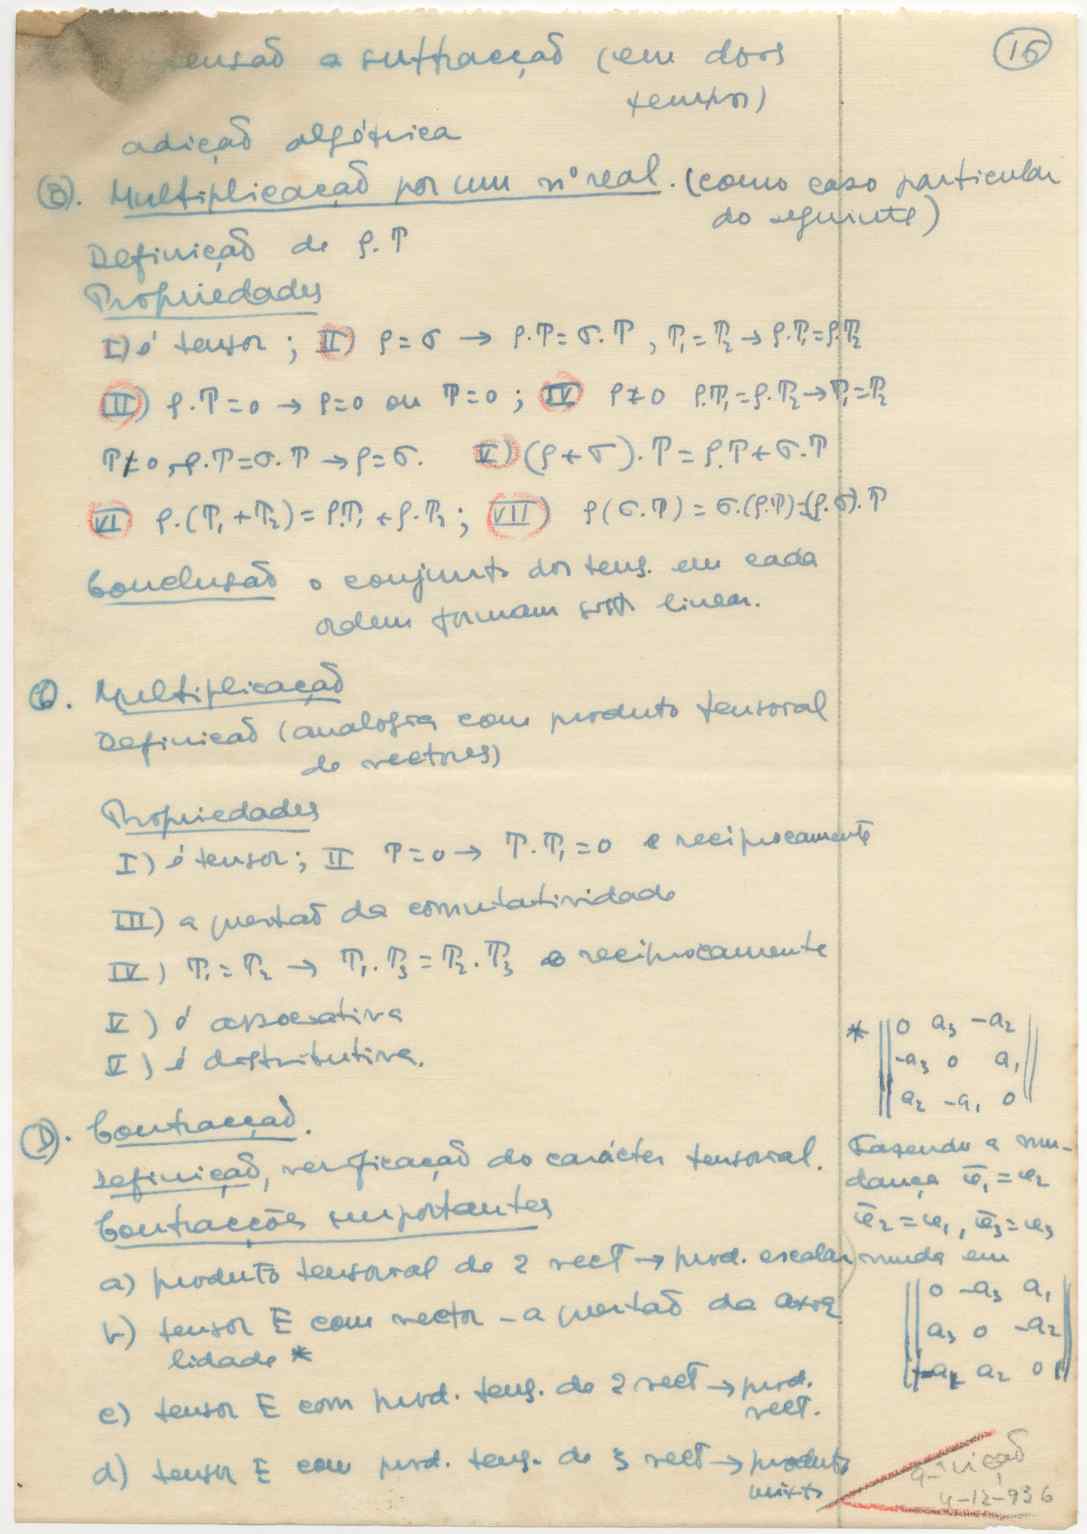 ensão a subtracção (em dois
tempos)
16
adição algébrica
B). Multiplicação por um nº real. (como caso particular
do seguinte)
Definição de ρ.T
Propriedades
I) é tensor ; II) ρ=σ → ρ.T=σ.T , T₁=T₂ → ρ.T₁=ρ.T₂
III) ρ.T=0 → ρ=0 ou T=0 ; IV ρ≠0 ρ.T₁=ρ.T₂→T₁=T₂
T≠0, ρ.T=σ.T → ρ=σ. V) (ρ+σ).T=ρ.T+σ.T
VI ρ.(T₁+T₂)=ρ.T₁+ρ.T₂ ; VII) ρ(σ.T)=σ.(ρ.T)=(ρ.σ).T
Conclusão o conjunto dos tens. em cada
ordem formam sist. linear.
C. Multiplicação
Definição (analogia com produto tensorial
de vectores)
Propriedades
I) é tensor ; II T=0 → T.T₁=0 e reciprocamente
III) a questão da comutatividade
IV) T₁=T₂ → T₁.T₃=T₂.T₃ e reciprocamente
V) é associativa
V) é distributiva.
D). Contracção.
Definição, verificação do carácter tensorial.
Contracções importantes
a) produto tensorial de 2 vect → prod. escalar
b) tensor E com vector – a questão da axia
lidade *
c) tensor E com prod. tens. de 2 vect → prod.
vect.
d) tensor E com prod. tens. de 3 vect → produto
mixto
* || 0 a₃ -a₂ ||
|| -a₃ 0 a₁ ||
|| a₂ -a₁ 0 ||
Fazendo a mu-
dança e̅₁=e₂
e̅₂=e₁, e̅₃=e₃
muda em
|| 0 -a₃ a₁ ||
|| a₃ 0 -a₂ ||
|| -a₁ a₂ 0 ||
4ª lição
4-12-936